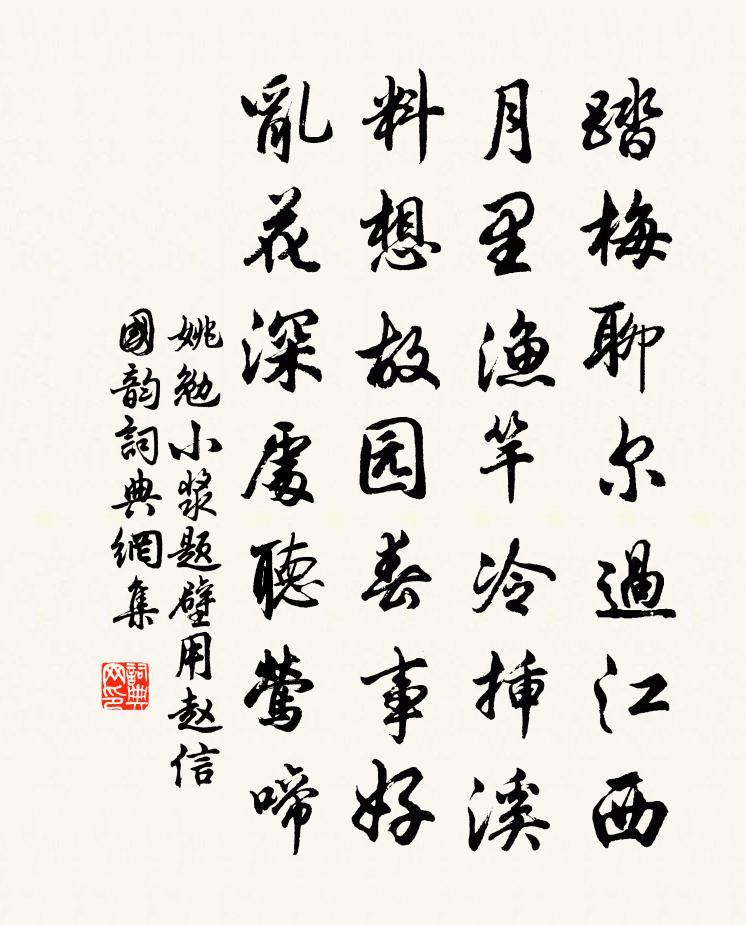 踏梅聊尔過江西
月里漁竿冷挿溪
料想故园春事好
亂花深處聽鶯啼
姚勉小漿題壁用赵信
國韵詞典網集
詞典网印